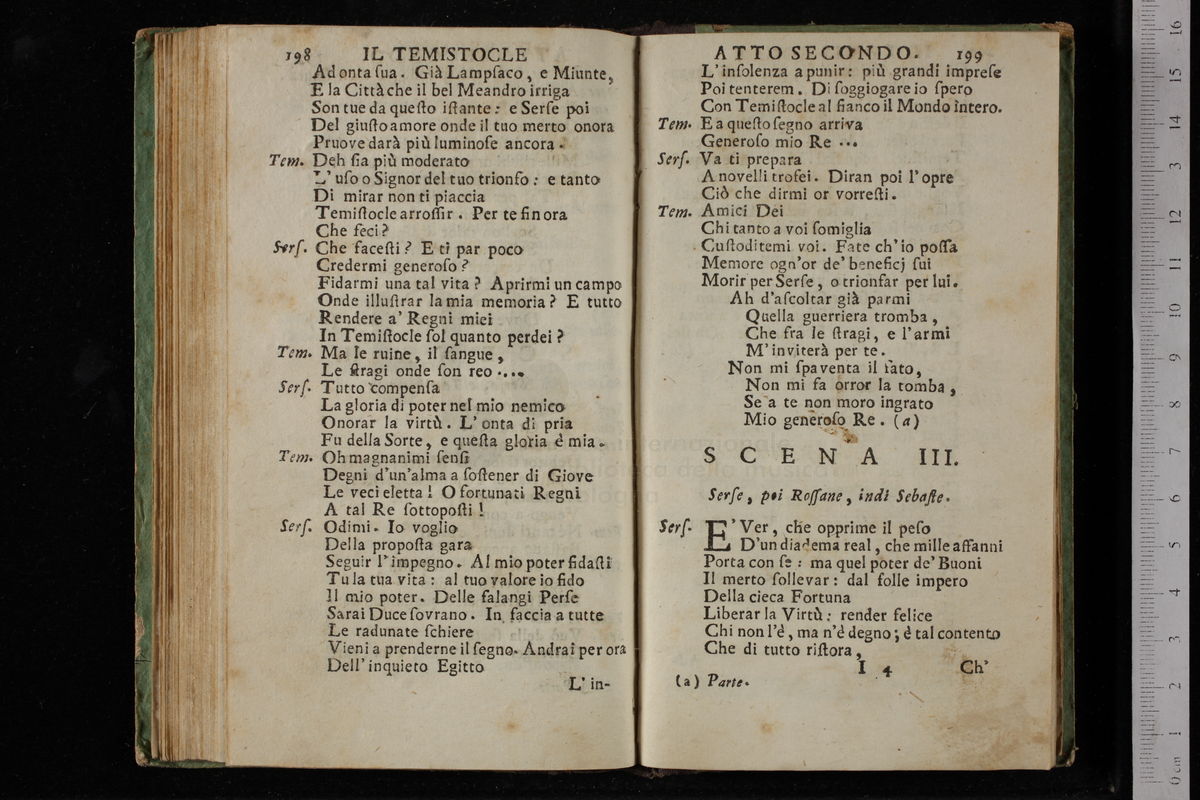 198 IL TEMISTOCLE
Ad onta ſua. Già Lampſaco, e Miunte,
E la Città che il bel Meandro irriga
Son tue da queſto iſtante: e Serſe poi
Del giuſto amore onde il tuo merto onora
Pruove darà più luminoſe ancora.
Tem. Deh ſia più moderato
L' uſo o Signor del tuo trionfo: e tanto
Di mirar non ti piaccia
Temiſtocle arroſſir. Per te fin ora
Che feci?
Serſ. Che faceſti? E ti par poco
Credermi generoſo?
Fidarmi una tal vita? Aprirmi un campo
Onde illuſtrar la mia memoria? E tutto
Rendere a' Regni miei
In Temiſtocle ſol quanto perdei?
Tem. Ma le ruine, il ſangue,
Le ſtragi onde ſon reo ....
Serſ. Tutto compenſa
La gloria di poter nel mio nemico
Onorar la virtù. L' onta di pria
Fu della Sorte, e queſta gloria è mia.
Tem. Oh magnanimi ſenſi
Degni d'un'alma a ſoſtener di Giove
Le veci eletta! O fortunati Regni
A tal Re ſottopoſti!
Serſ. Odimi. Io voglio
Della propoſta gara
Seguir l'impegno. Al mio poter fidaſti
Tu la tua vita: al tuo valore io fido
Il mio poter. Delle falangi Perſe
Sarai Duce ſovrano. In faccia a tutte
Le radunate ſchiere
Vieni a prenderne il ſegno. Andrai per ora
Dell' inquieto Egitto
L' in-
ATTO SECONDO. 199
L' inſolenza a punir: più grandi impreſe
Poi tenterem. Di ſoggiogare io ſpero
Con Temiſtocle al fianco il Mondo intero.
Tem. E a queſto ſegno arriva
Generoſo mio Re ...
Serſ. Va ti prepara
A novelli trofei. Diran poi l' opre
Ciò che dirmi or vorreſti.
Tem. Amici Dei
Chi tanto a voi ſomiglia
Cuſtoditemi voi. Fate ch' io poſſa
Memore ogn'or de' beneficj ſui
Morir per Serſe, o trionfar per lui.
Ah d'aſcoltar già parmi
Quella guerriera tromba,
Che fra le ſtragi, e l'armi
M' inviterà per te.
Non mi ſpaventa il fato,
Non mi fa orror la tomba,
Se a te non moro ingrato
Mio generoſo Re. (a)
SCENA III.
Serſe, poi Roſſane, indi Sebaſte.
Serſ. E' Ver, che opprime il peſo
D'un diadema real, che mille affanni
Porta con ſe: ma quel poter de' Buoni
Il merto ſollevar: dal folle impero
Della cieca Fortuna
Liberar la Virtù: render felice
Chi non l'è, ma n'è degno; è tal contento
Che di tutto riſtora,
I 4 Ch'
(a) Parte.
0 cm 1 2 3 4 5 6 7 8 9 10 11 12 13 14 15 16